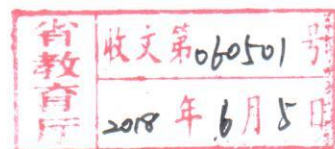 省教育厅
收文第060501号
2018年6月5日